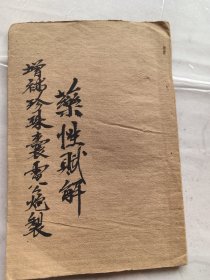 藥性賦解
增補珍珠囊雷公炮製